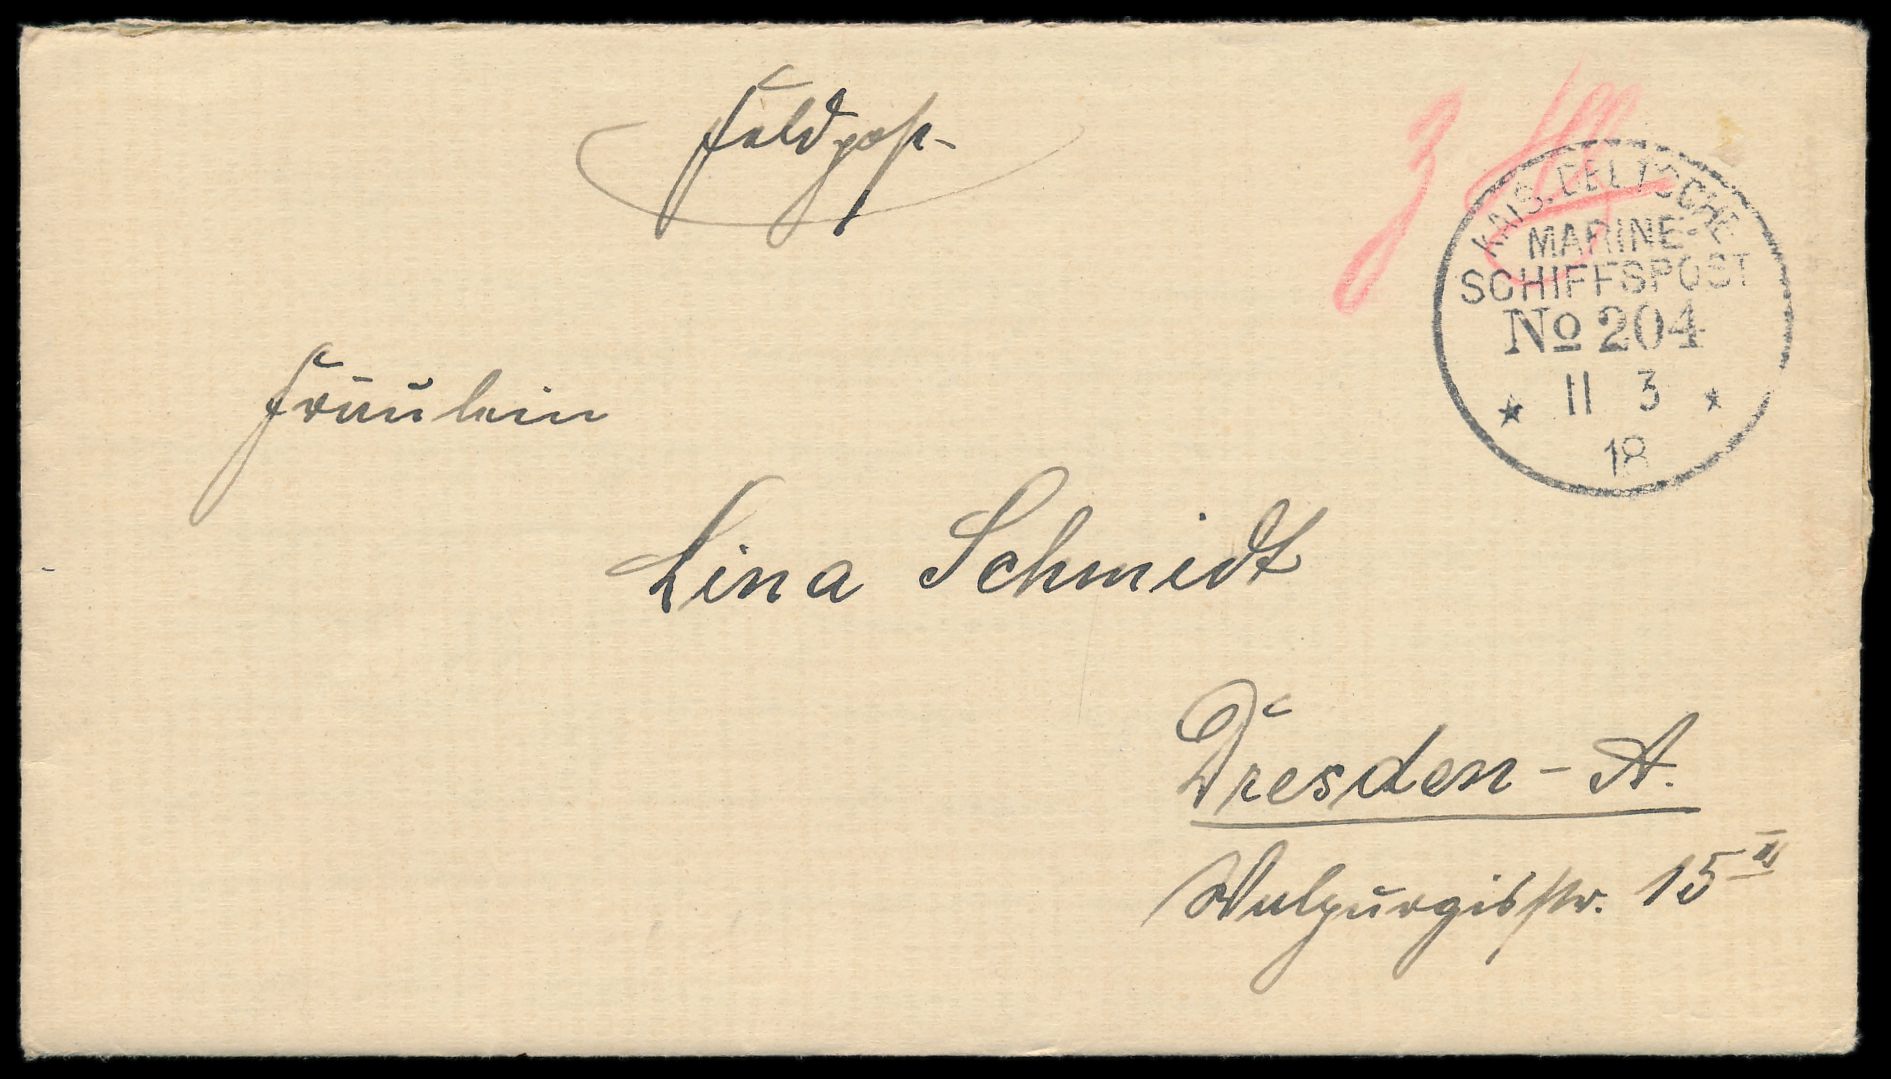 Feldpost.
KAIS. DEUTSCHE
MARINE-
SCHIFFSPOST
No 204
* 11 3 *
18
Fräulein
Lina Schmidt
Dresden - A.
Walpurgisstr. 15 II